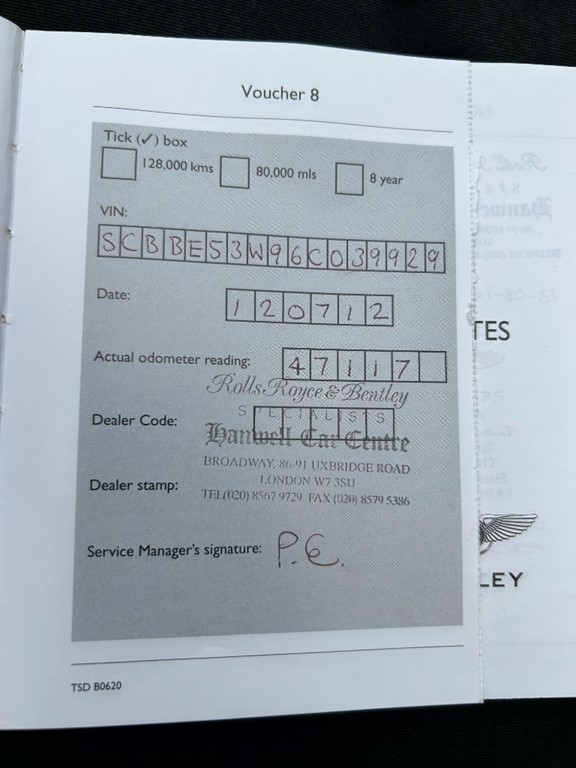 Voucher 8
Tick (✓) box
128,000 kms 80,000 mls 8 year
VIN:
SCBBE53W96C039929
Date: 120712
Actual odometer reading: 47117
Rolls-Royce & Bentley
Dealer Code: SPECIALISTS
Hanwell Car Centre
BROADWAY, 86-91 UXBRIDGE ROAD
LONDON W7 3SU
Dealer stamp:
TEL (020) 8567 9729 FAX (020) 8579 5386
Service Manager's signature: P.E.
TSD B0620
TES
LEY